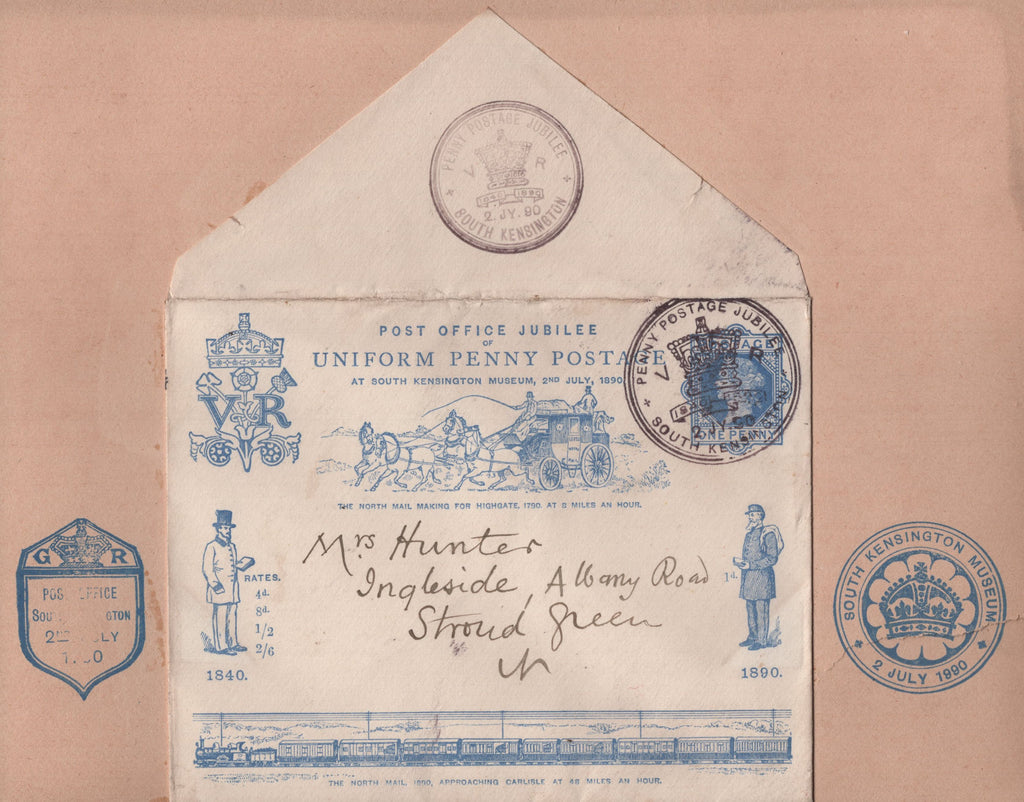 PENNY POSTAGE JUBILEE
V R
1840 1890
2. JY. 90
SOUTH KENSINGTON
POST OFFICE JUBILEE
OF
UNIFORM PENNY POSTAGE
AT SOUTH KENSINGTON MUSEUM, 2ND JULY, 1890
PENNY POSTAGE JUBILEE
V R
2 JY 90
SOUTH KENSINGTON
ONE PENNY
VR
THE NORTH MAIL MAKING FOR HIGHGATE, 1790. AT 8 MILES AN HOUR.
Mrs Hunter
Ingleside, Albany Road
Stroud Green
N
RATES.
4d.
8d.
1/2
2/6
1840.
1d.
1890.
G R
POST OFFICE
2ND JULY
SOUTH KENSINGTON MUSEUM
2 JULY 1990
THE NORTH MAIL, 1890, APPROACHING CARLISLE AT 48 MILES AN HOUR.